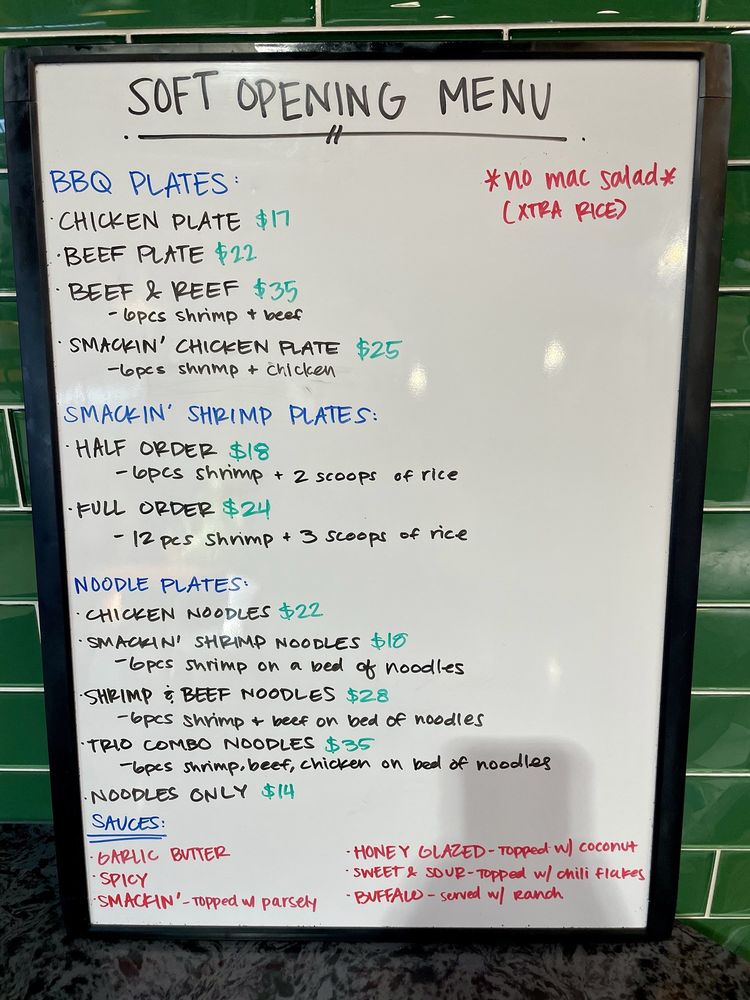 SOFT OPENING MENU
BBQ PLATES:
*no mac salad*
(XTRA RICE)
· CHICKEN PLATE $17
· BEEF PLATE $22
· BEEF & REEF $35
- 6pcs shrimp + beef
· SMACKIN' CHICKEN PLATE $25
- 6pcs shrimp + chicken
SMACKIN' SHRIMP PLATES:
· HALF ORDER $18
- 6pcs shrimp + 2 scoops of rice
· FULL ORDER $24
- 12 pcs shrimp + 3 scoops of rice
NOODLE PLATES:
· CHICKEN NOODLES $22
· SMACKIN' SHRIMP NOODLES $18
- 6pcs shrimp on a bed of noodles
· SHRIMP & BEEF NOODLES $28
- 6pcs shrimp + beef on bed of noodles
· TRIO COMBO NOODLES $35
- 6pcs shrimp, beef, chicken on bed of noodles
· NOODLES ONLY $14
SAUCES:
· GARLIC BUTTER
· SPICY
· SMACKIN' - TOPPED w/ parsely
· HONEY GLAZED - TOPPED w/ coconut
· SWEET & SOUR - TOPPED w/ chili flakes
· BUFFALO - served w/ ranch